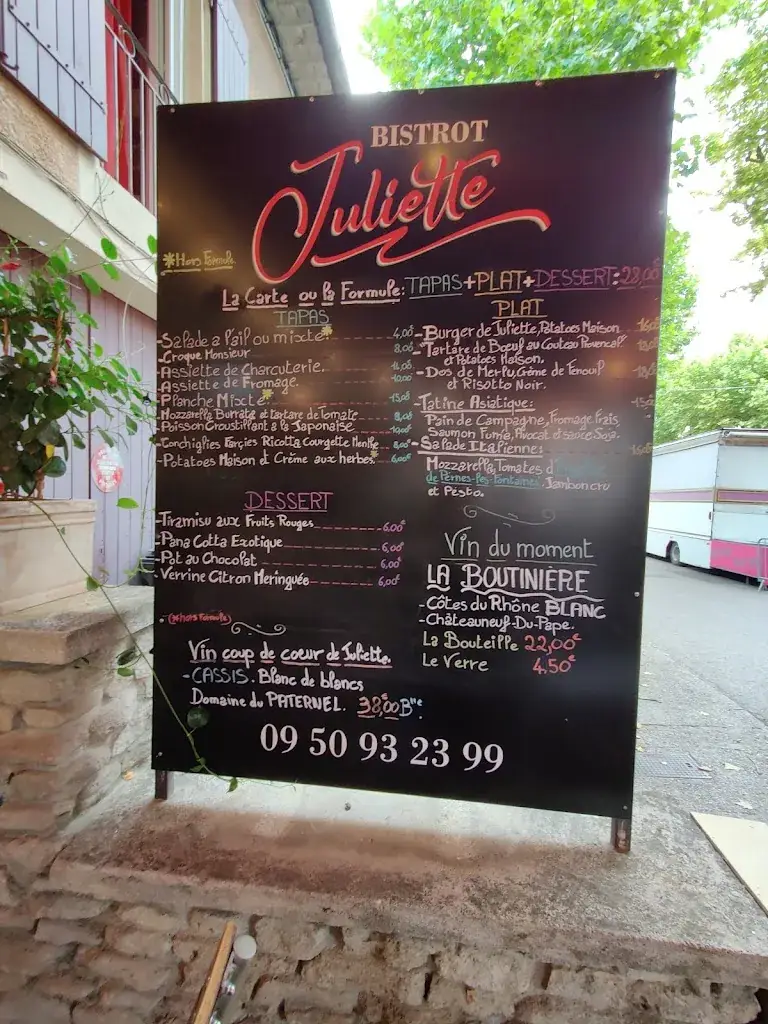 BISTROT
Juliette
*Hors Formule.
La Carte ou la Formule: TAPAS+PLAT+DESSERT: 28,00€
TAPAS
-Salade a l'ail ou mixte* 4,00€
-Croque Monsieur 8.00€
-Assiette de Charcuterie.
-Assiette de Fromage. 10,00€
-Planche Mixte* 15,00€
-Mozzarella Burrata et tartare de Tomate
-Poisson Croustillant à la Japonaise
-Conchiglies Farçies Ricotta Courgette Menthe 8,00€
-Potatoes Maison et Crème aux herbes.* 6,00€
PLAT
-Burger de Juliette, Potatoes Maison
-Tartare de Bœuf au Couteau Provençal
et Potatoes Maison.
-Dos de Merlu, Crème de Fenouil
et Risotto Noir.
-Tatine Asiatique:
Pain de Campagne, Fromage Frais,
Saumon Fumé, Avocat et sauce Soja.
-Salade Italienne:
Mozzarella, Tomates d
de Pernes-les-Fontaines. Jambon cru
et Pesto.
DESSERT
-Tiramisu aux Fruits Rouges 6,00€
-Pana Cotta Exotique 6,00€
-Pot au Chocolat 6,00€
-Verrine Citron Meringuée 6,00€
(*hors Formule)
Vin du moment
LA BOUTINIÈRE
-Côtes du Rhône BLANC
-Châteauneuf-Du-Pape.
La Bouteille 22,00€
Le Verre 4,50€
Vin coup de coeur de Juliette.
-CASSIS. Blanc de blancs
Domaine du PATERNEL. 38,00€ Blle.
09 50 93 23 99